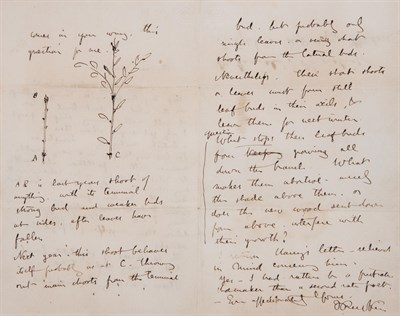 comes in your way. this
question for me.
B
A
C
A B is last years shoot of
anything with its terminal
strong bud and weaker buds
at sides. after leaves have
fallen
Next year this shoot behaves
itself probably as at C. Throwing
out main shoots from the terminal
bud. but probably only
single leaves or very short
shoots from the lateral buds.
Nevertheless these short shoots
or leaves must form still
leaf buds in their axils, &
leave them for next winter
question
What stops these leaf buds
from growing all
down the branch. What
makes them abortive - merely
the shade above them. or
does the new wood sent down
from above interfere with
their growth?
letter - relieved
in mind concerning him.
Yes - I had rather be a
maker than a second rate poet.
Ever affectionately yours.
J Ruskin